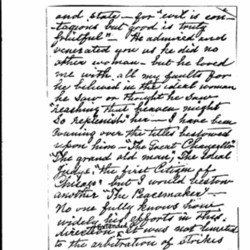 and state — for "evil is con-
tagious but good is doubly
fruitful" — He admired and
venerated you as he did no
other woman — but he loved
me with all my faults for
he believed in the ideal woman
he saw or thought he saw
"reaching that heaven might
so replenish her — I have been
running over the titles bestowed
upon him — The Great Chancellor
The grand old man, The Ideal
Judge, the first Citizen of
Chicago, but I would bestow
another The Peacemaker.
No one fully knows how
widely his efforts in this
direction extended It was not limited
to the arbitration of strikes